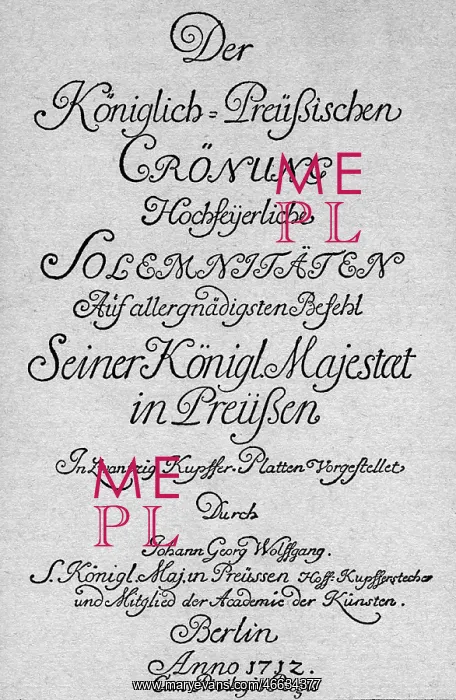 Der
Königlich = Preüßischen
CRÖNUNG
Hochfeÿerliche
SOLEMNITÄTEN
Auf allergnädigsten Befehl
Seiner Königl. Majestæt
in Preüßen
In zwantzig Kupffer. Platten Vorgestellet
Durch
Johann Georg Wolffgang.
S. Königl. Maj. in Preüssen Hoff: Kupfferstecher
und Mitglied der Academie der Künsten.
Berlin
Anno 1712.
ME
PL
ME
PL
www.maryevans.com/46684377